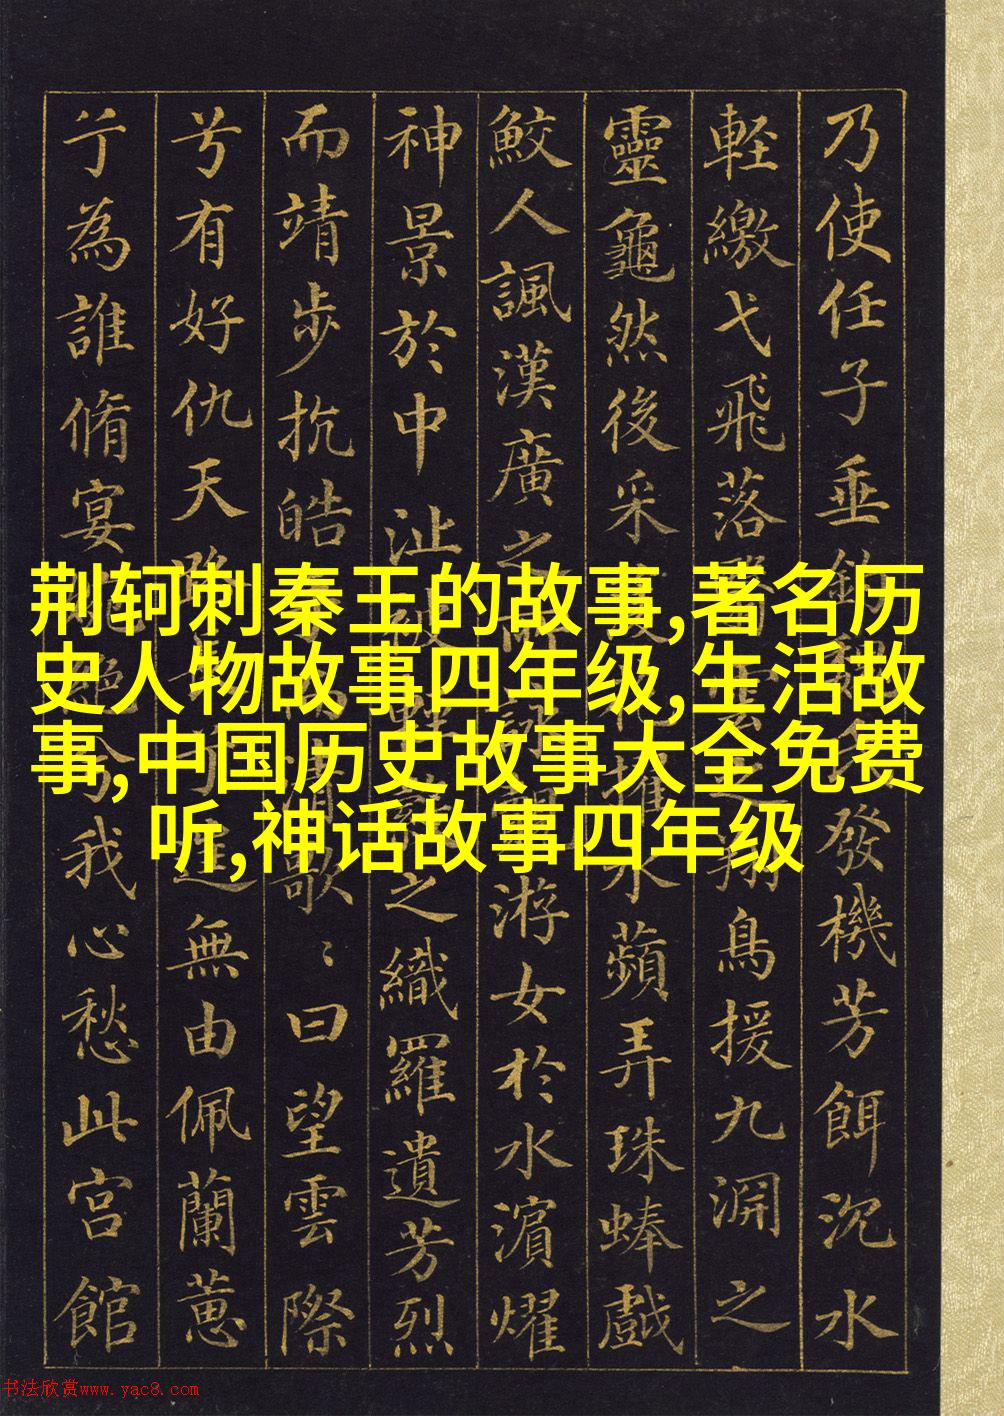 乃使任子垂發機芳餌沉水
軽繳弋飛落翔鳥援九淵之
靈龜然後采水蘋弄珠蜯戲
鮫人諷漢廣之游女於水濱燿
神景於中沚之織羅遺芳烈
而靖步抗皓歌〻曰望雲際
兮有好仇天無由佩蘭蕙
兮為誰脩宴我心愁此宮館
荆轲刺秦王的故事,著名历
史人物故事四年级,生活故
事,中国历史故事大全免费
听,神话故事四年级
书法欣赏www.yac8.com